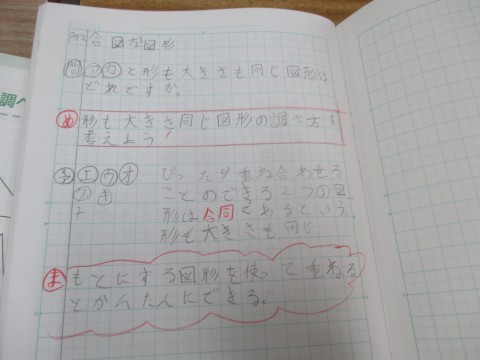 合同な図形
と形も大きさも同じ図形は
どれですか。
め 形も大きさも同じ図形の調べ方を
考えよう!
エ ウ オ ぴったり重ね合わせる
ことのできる2つの図
形は合同であるという
形も大きさも同じ
ま もとにする図形を使って重ねる
とかんたんにできる。
調べ